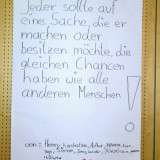 Jeder sollte auf
eine Sache, die er
machen oder
besitzen möchte, die
gleichen Chancen
haben wie alle
anderen Menschen
!
von: Henny, Konstantin, Arthur,